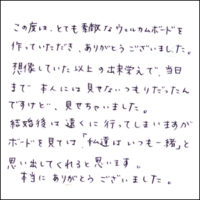 この度は、とても素敵なウェルカムボードを
作っていただき、ありがとうございました。
想像していた以上の出来栄えで、当日
まで本人には見せないつもりだったん
ですけど、見せちゃいました。
結婚後は遠くに行ってしまいますが
ボードを見ては「私達はいつも一緒」と
思い出してくれると思います。
本当にありがとうございました。